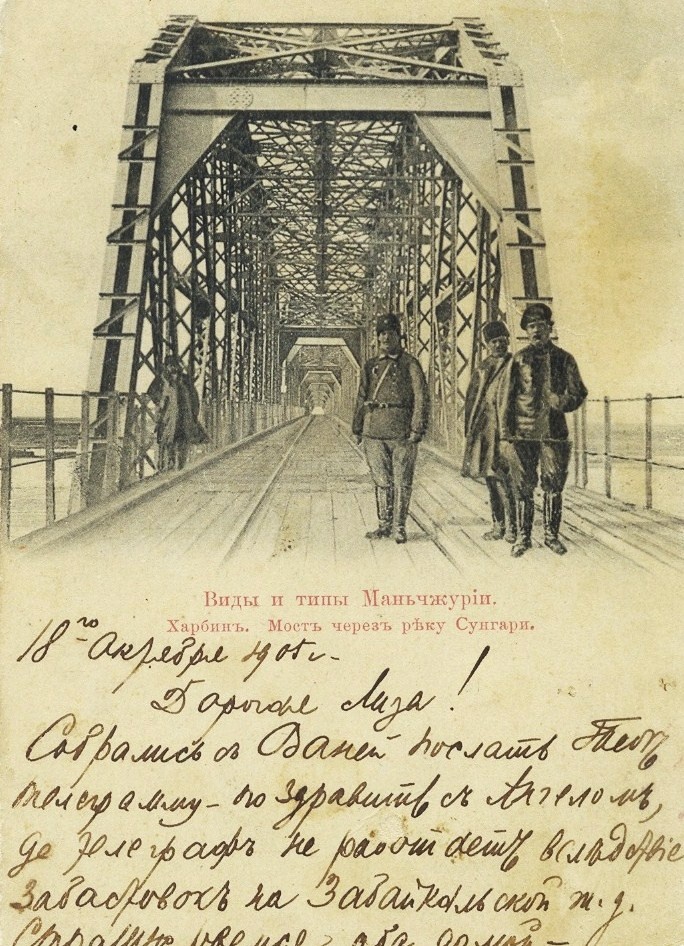 Виды и типы Маньчжуріи.
Харбинъ. Мостъ черезъ рѣку Сунгари.
18го Октября 1905 г.
Дорогая Лиза!
Собрались съ Ваней послать Тебѣ
телеграмму - поздравить съ Ангеломъ,
да телеграфъ не работаетъ вслѣдствіе
забастовокъ на Забайкальской ж. д.
домой